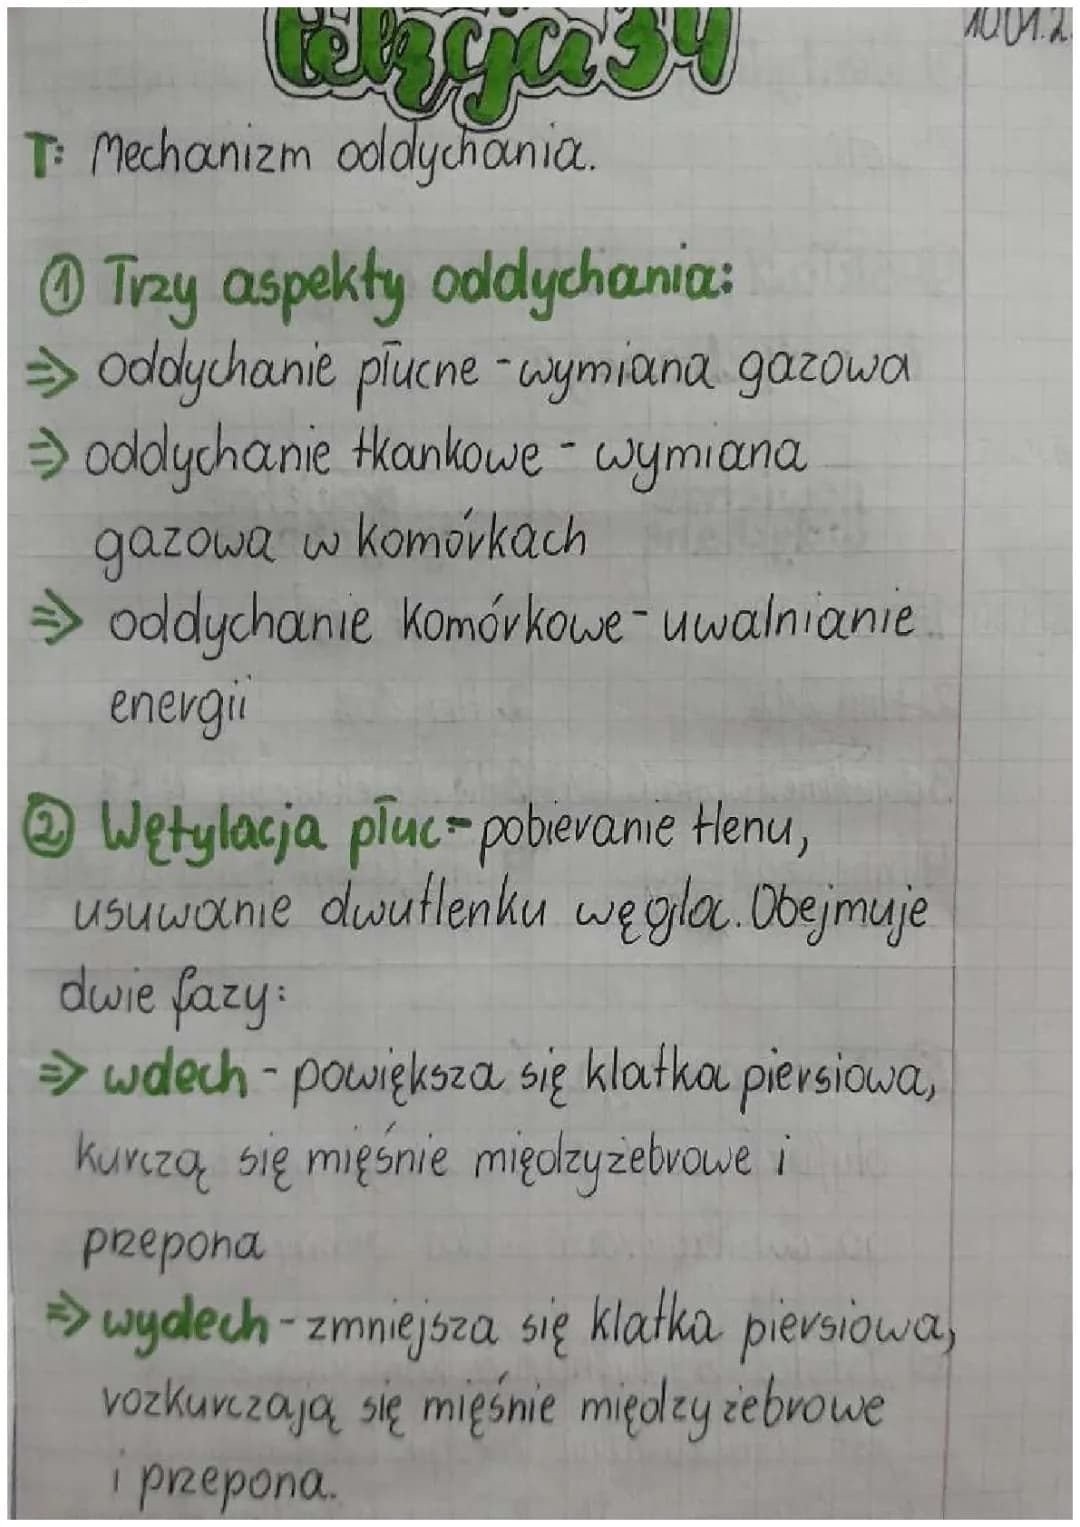 Lekcja 34
T: Mechanizm oddychania.
① Trzy aspekty oddychania:
⇒ oddychanie płucne - wymiana gazowa
⇒ oddychanie tkankowe - wymiana
gazowa w komórkach
⇒ oddychanie komórkowe - uwalnianie
energii
② Wętylacja płuc - pobieranie tlenu,
usuwanie dwutlenku węgla. Obejmuje
dwie fazy:
⇒ wdech - powiększa się klatka piersiowa,
kurczą się mięśnie międzyżebrowe i
przepona
⇒ wydech - zmniejsza się klatka piersiowa,
rozkurczają się mięśnie międzyżebrowe
i przepona.